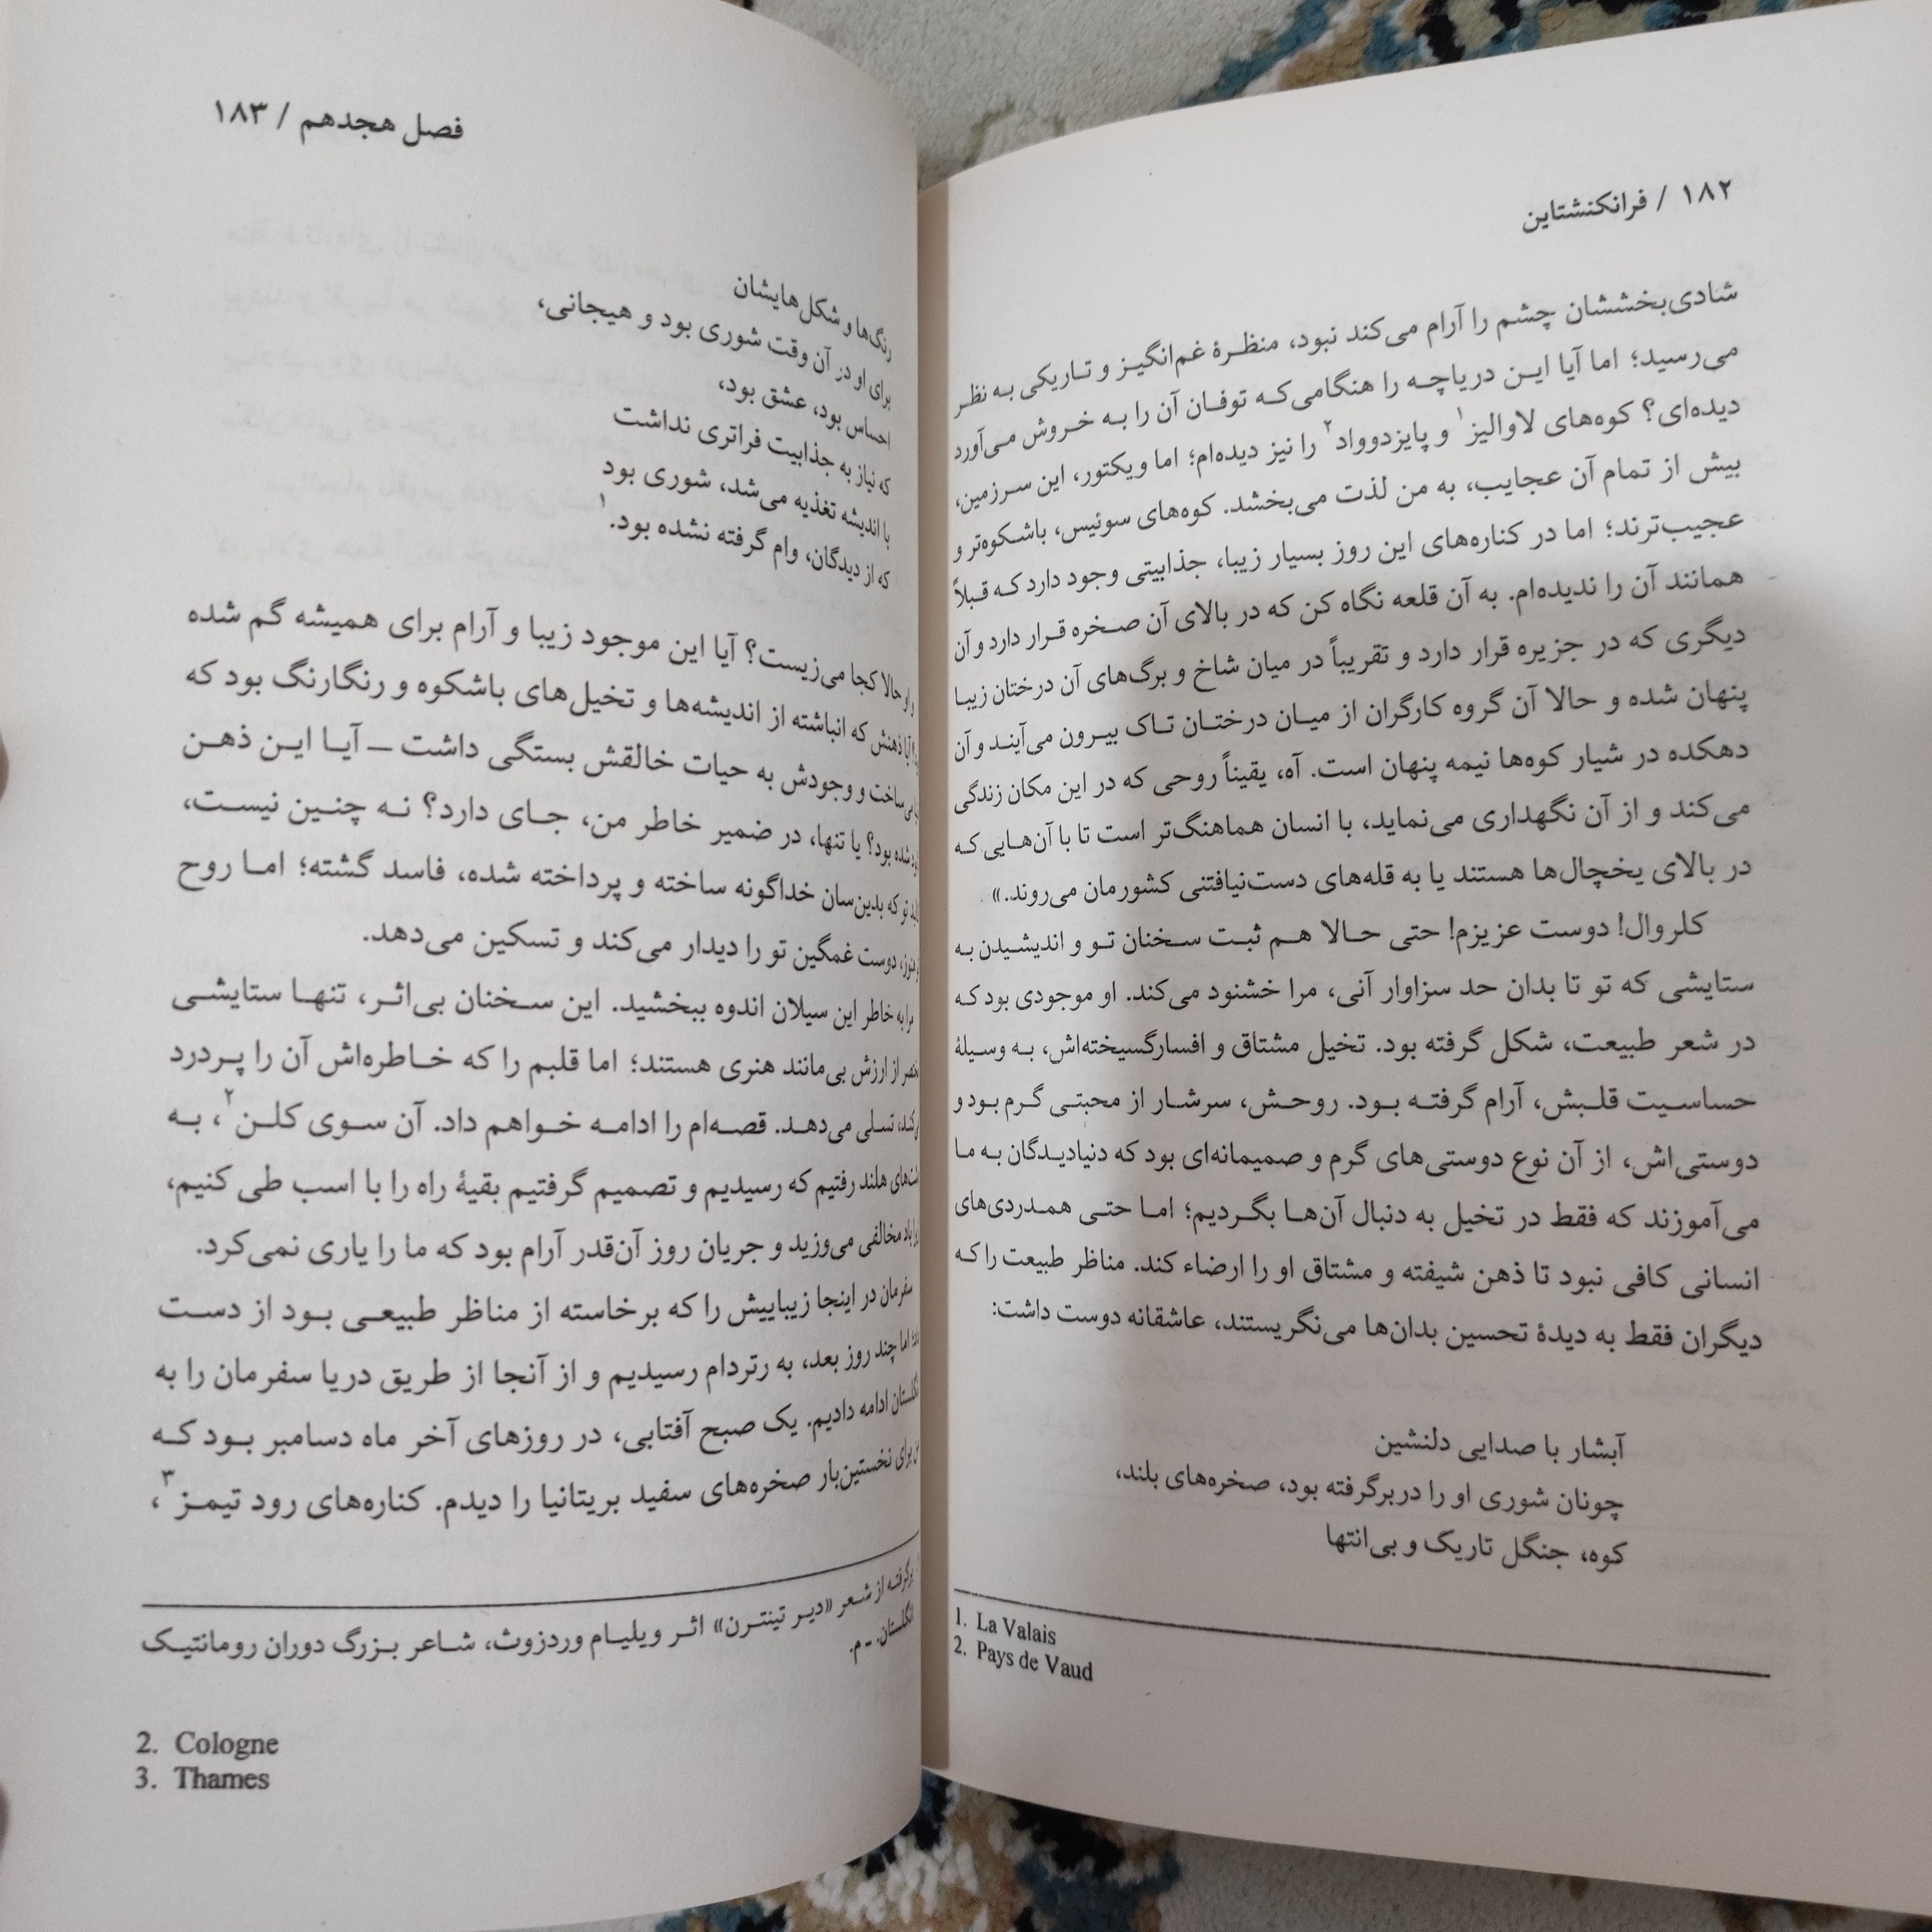 ۱۸۲ / فرانکنشتاین
شادی‌بخششان چشم را آرام می‌کند نبود، منظرهٔ غم‌انگیز و تاریکی به نظر
می‌رسید؛ اما آیا این دریاچه را هنگامی‌که توفان آن را به خروش می‌آورد
دیده‌ای؟ کوه‌های لاوالیز۱ و پایزدوواد۲ را نیز دیده‌ام؛ اما ویکتور، این سرزمین،
بیش از تمام آن عجایب، به من لذت می‌بخشد. کوه‌های سوئیس، باشکوه‌تر و
عجیب‌ترند؛ اما در کناره‌های این روز بسیار زیبا، جذابیتی وجود دارد که قبلاً
همانند آن را ندیده‌ام. به آن قلعه نگاه کن که در بالای آن صخره قرار دارد و آن
دیگری که در جزیره قرار دارد و تقریباً در میان شاخ و برگ‌های آن درختان زیبا
پنهان شده و حالا آن گروه کارگران از میان درختان تاک بیرون می‌آیند و آن
دهکده در شیار کوه‌ها نیمه پنهان است. آه، یقیناً روحی که در این مکان زندگی
می‌کند و از آن نگهداری می‌نماید، با انسان هماهنگ‌تر است تا با آن‌هایی که
در بالای یخچال‌ها هستند یا به قله‌های دست‌نیافتنی کشورمان می‌روند.»
کلروال! دوست عزیزم! حتی حالا هم ثبت سخنان تو و اندیشیدن به
ستایشی که تو تا بدان حد سزاوار آنی، مرا خشنود می‌کند. او موجودی بود که
در شعر طبیعت، شکل گرفته بود. تخیل مشتاق و افسارگسیخته‌اش، به وسیلهٔ
حساسیت قلبش، آرام گرفته بود. روحش، سرشار از محبتی گرم بود و
دوستی‌اش، از آن نوع دوستی‌های گرم و صمیمانه‌ای بود که دنیادیدگان به ما
می‌آموزند که فقط در تخیل به دنبال آن‌ها بگردیم؛ اما حتی همدردی‌های
انسانی کافی نبود تا ذهن شیفته و مشتاق او را ارضاء کند. مناظر طبیعت را که
دیگران فقط به دیدهٔ تحسین بدان‌ها می‌نگریستند، عاشقانه دوست داشت:
آبشار با صدایی دلنشین
چونان شوری او را دربرگرفته بود، صخره‌های بلند،
کوه، جنگل تاریک و بی‌انتها
1. La Valais
2. Pays de Vaud
فصل هجدهم / ۱۸۳
رنگ‌ها و شکل‌هایشان
برای او در آن وقت شوری بود و هیجانی،
احساس بود، عشق بود،
که نیاز به جذابیت فراتری نداشت
با اندیشه تغذیه می‌شد، شوری بود
که از دیدگان، وام گرفته نشده بود.۱
و او حالا کجا می‌زیست؟ آیا این موجود زیبا و آرام برای همیشه گم شده
آیا ذهنش که انباشته از اندیشه‌ها و تخیل‌های باشکوه و رنگارنگ بود که
می‌ساخت و وجودش به حیات خالقش بستگی داشت ـ آیا این ذهن
شده بود؟ یا تنها، در ضمیر خاطر من، جای دارد؟ نه چنین نیست،
تو که بدین‌سان خداگونه ساخته و پرداخته شده، فاسد گشته؛ اما روح
دوست غمگین تو را دیدار می‌کند و تسکین می‌دهد.
مرا به خاطر این سیلان اندوه ببخشید. این سخنان بی‌اثر، تنها ستایشی
از ارزش بی‌مانند هنری هستند؛ اما قلبم را که خاطره‌اش آن را پردرد
می‌کند، تسلی می‌دهد. قصه‌ام را ادامه خواهم داد. آن سوی کلن۲، به
هلند رفتیم که رسیدیم و تصمیم گرفتیم بقیهٔ راه را با اسب طی کنیم،
باد مخالفی می‌وزید و جریان روز آن‌قدر آرام بود که ما را یاری نمی‌کرد.
سفرمان در اینجا زیباییش را که برخاسته از مناظر طبیعی بود از دست
اما چند روز بعد، به رتردام رسیدیم و از آنجا از طریق دریا سفرمان را به
انگلستان ادامه دادیم. یک صبح آفتابی، در روزهای آخر ماه دسامبر بود که
برای نخستین‌بار صخره‌های سفید بریتانیا را دیدم. کناره‌های رود تیمز۳،
برگرفته از شعر «دیر تینترن» اثر ویلیام وردزوث، شاعر بزرگ دوران رومانتیک
انگلستان. ـ م.
2. Cologne
3. Thames